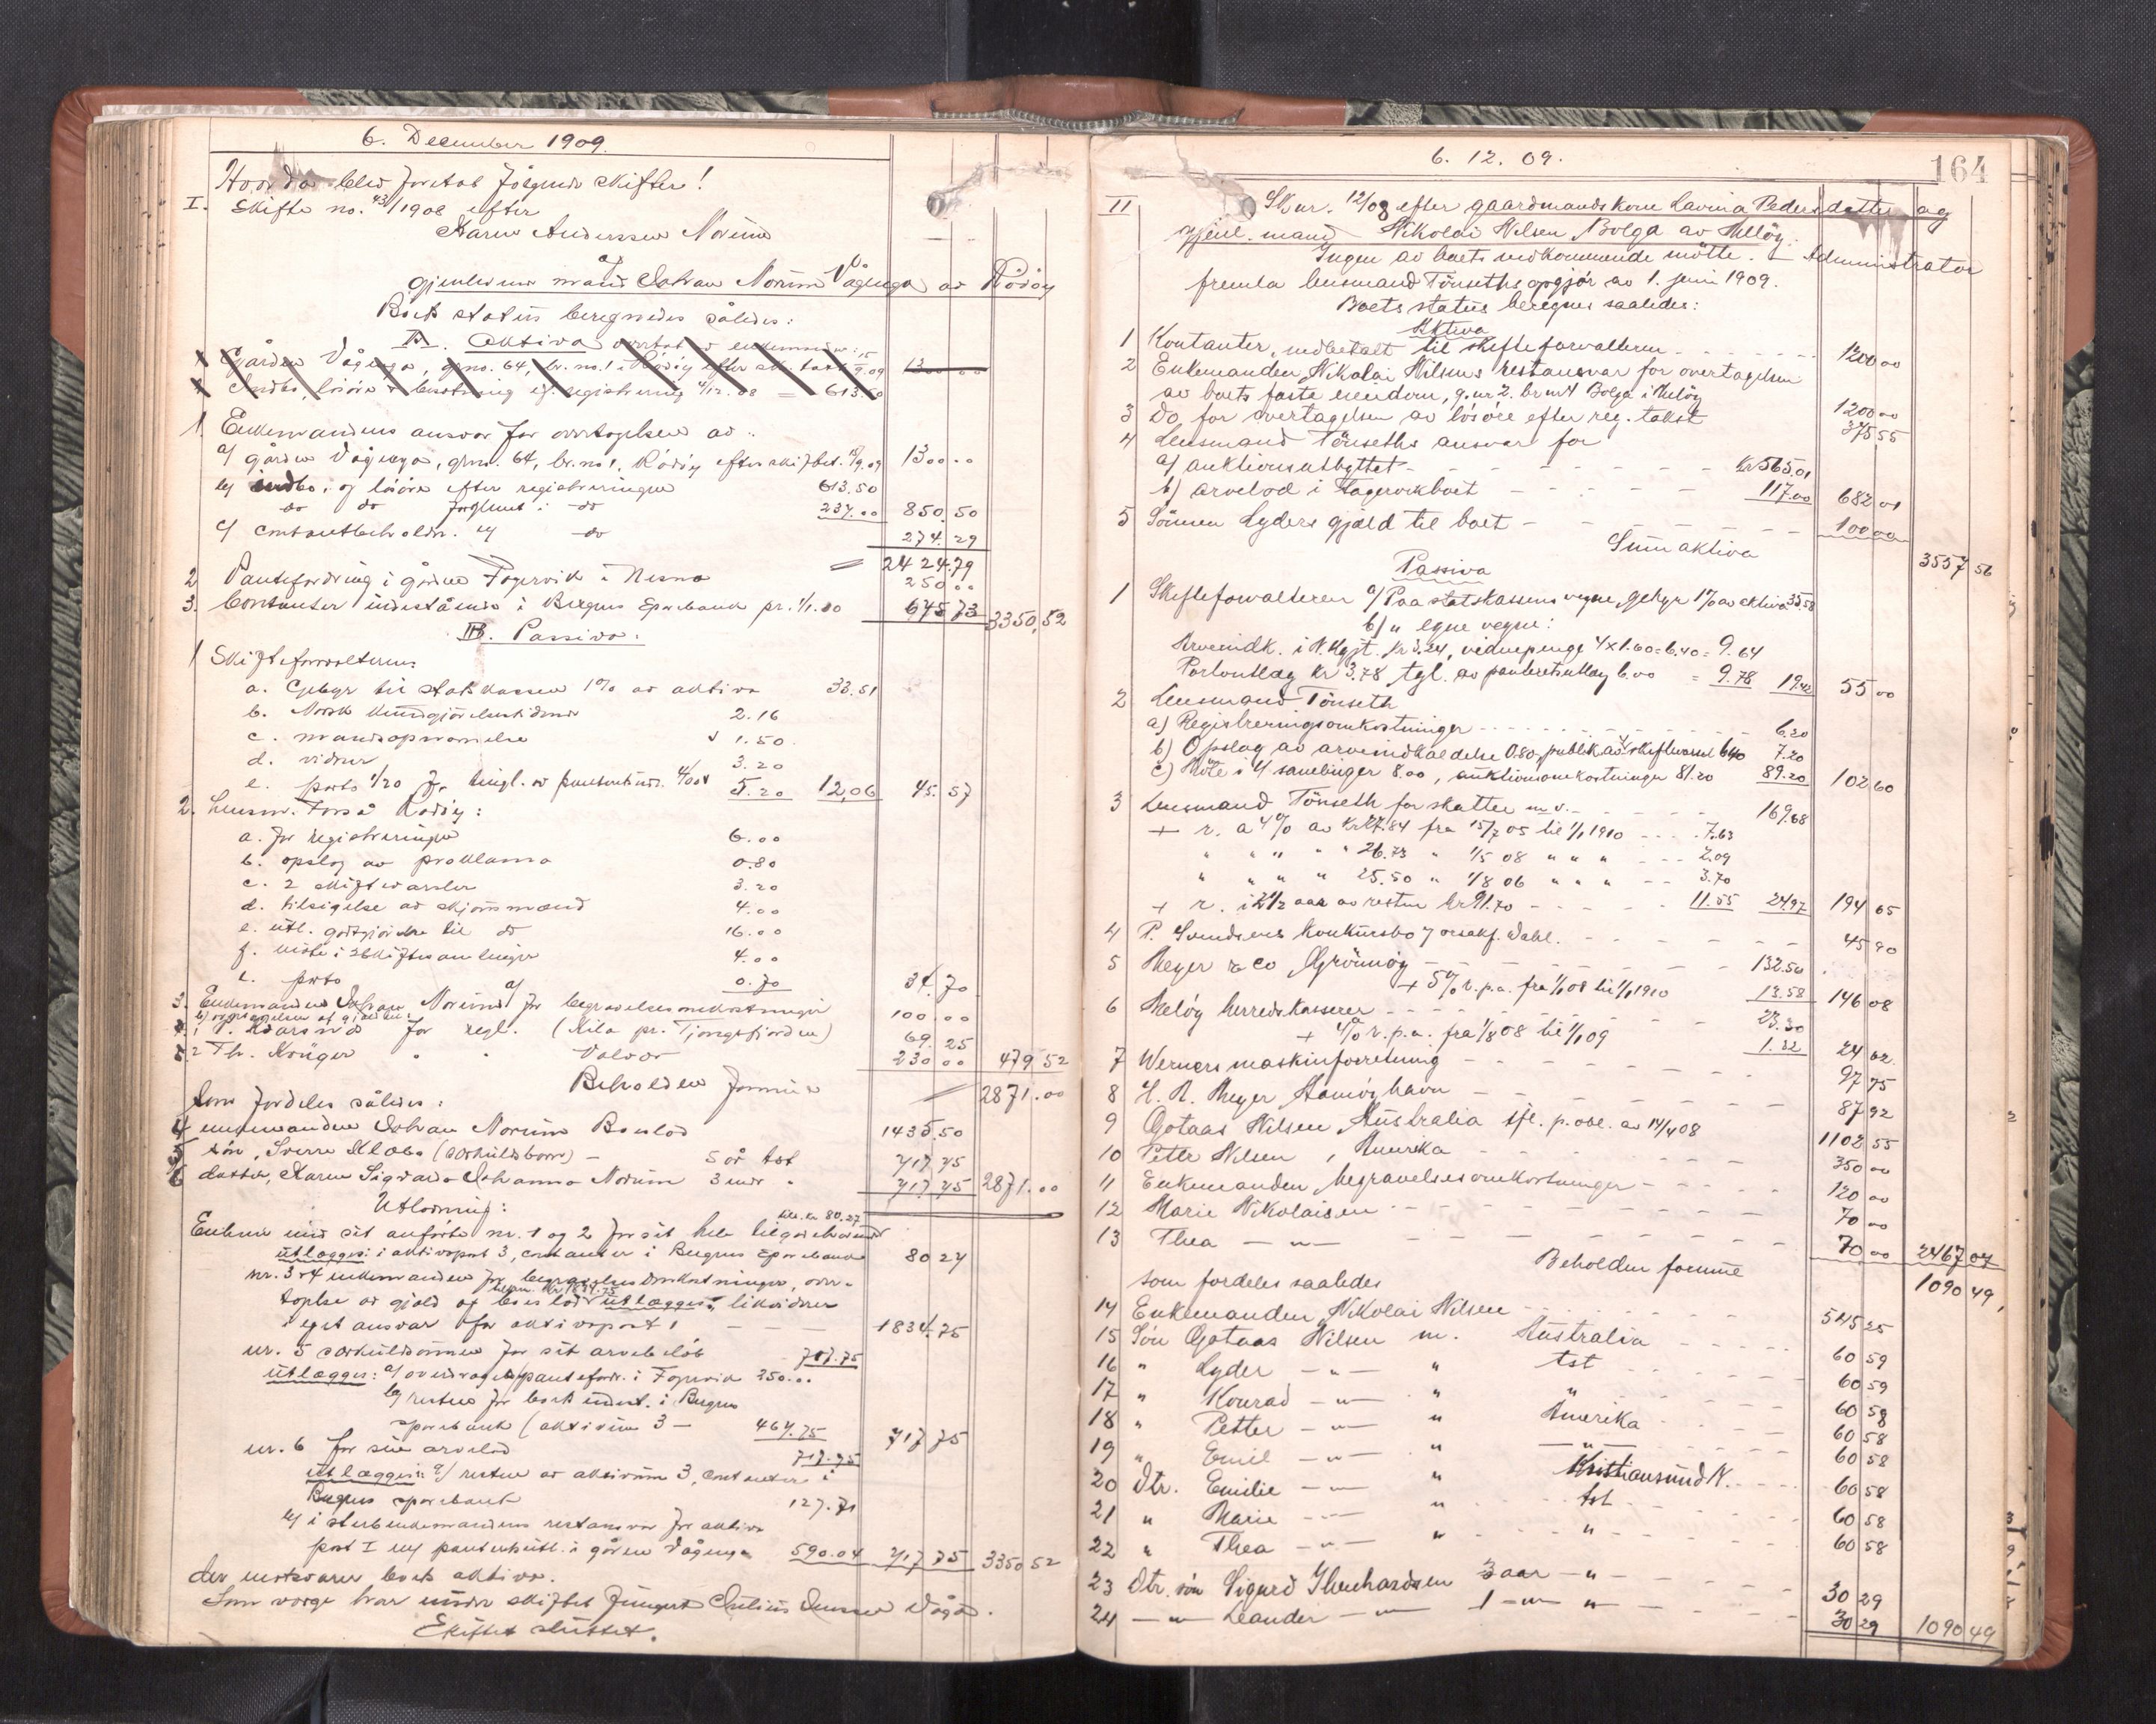 6. December 1909.
Hvor da blev foretat følgende skifter!
I. Skifte no. 43/1908 efter
Karen Anderssen Norum
og
gjenlevende mand Johan Norum Vågenga av Rödöy
Boets status beregnedes således:
A. Aktiva
Gården Vågenga, grno. 64, br. no. 1 i Rödöy efter 15/9.09 1300 00
Indbo, lösöre 4/12.08 = 613.50
1. Enkemandens ansvar for overtagelsen av:
a/ gården Vågenga, grno. 64, br. no 1, Rödöy efter 15/9.09 1300 00
b/ indbo, og lösöre efter registreringen 613.50
do do do 237.00 850.50
c/ contantbeholdn. do 274.29
= 2424.79
2 Pantefordring i gården Fagervik i Nesna 250 00
3. Contanter indestående i Bergens Sparebank pr. 1/1.10 675 73 3350,52
B. Passiva:
1 Skifteforvalteren
a. Gebyr til statskassen 1% av aktiva 33.51
b. Norsk Kundgjörelsestidende 2.16
c. 1.50
d. vidner 3.20
e. porto 1/20 for tingl. av 4/00 5.20 12,06 45.57
2. Lensm. Rödöy:
a. for registreringen 6.00
b. opslag av proklama 0.80
c. 2 skiftevarsler 3.20
d. tilsigelse av skjönsmænd 4.00
e. utl. godtgjörelse til do 16.00
f. møte i skiftesamlinger 4.00
porto 0.70 34.70
3. Enkemanden Johan Norum a/ for begravelsesomkostninger 100.00
for regl. (Kila pr. Tjongsfjorden) 69.25
2 Th. Krüger " " Valvær 230.00 479 52
Beholden formue 2871.00
Som fordeles således:
4 enkemanden Johan Norum Boslod 1435.50
5 sön, Sverre Kleba - 5 år tst 717 75
6 datter, Karen Sigvarda Johanna Norum 3 mdr " 717 75 2871.00
Utlodning:
Enken med sit anförte nr. 1 og 2 for sit hele tilgodehavende kr. 80.27
utlægges: i aktivapost 3, contanter i Bergens Sparebank 80 27
nr. 3-4 enkemanden for begravelsesomkostninger, over-
tagelse av gjæld og boslod utlægges: likvider
i eget ansvar for aktivapost 1 1834.75
nr. 5 for sit arvebelöb 717.75
utlægges: a/ pantefordr. i Fagervik 250.00
b/ resten for i Bergens
sparebank (aktivum 3 - 467.75 717 75
nr. 6 for sin arvelod 717.75
utlægges: a/ resten av aktivum 3, contanter i
Bergens sparebank 127.71
b/ i enkemandens restansvar for aktiva
post I i gården Vågenga 590.04 717 75 3350 52
der motsvarer boets aktiva.
Som værge har under skiftet fungert
Skiftet sluttet.
6. 12. 09. 164
II Sk nr. 12/08 efter gaardmandskone Lavina Pedersdatter og
gjenl. mand Nikolai Nilsen Bolga av Melöy.
Ingen av boets vedkommende mötte. Administrator
fremla lensmand Tönseths opgjör av 1. juni 1909.
Boets status beregnes saaledes:
Aktiva
1 Kontanter, indbetalt til skifteforvalteren 1200 00
2 Enkemanden Nikolai Nilsens restansvar for overtagelsen
av boets faste eiendom, g.nr 2. br nr 4 Bolga i Melöy 1200 00
3 Do for overtagelsen av lösöre efter reg. takst 375 55
4 Lensmand Tönseths ansvar for
a/ auktionsutbyttet - - - Kr 565.01
b/ arvelod i Fagervikboet - - - 117.00 682 01
5 Sönnen Lyders gjæld til boet - - - 100 00
Sum aktiva 3557 56
Passiva
1 Skifteforvalteren a/ Paa statskassens vegne, gebyr 1% av aktiva 35.58
b/ " egne vegne:
Arveindk. i N. Kgjt. kr 3.24, vidnepenge 4 x 1.60 = 6.40 = 9.64
Portoutlag kr 3.78, tgl. av panteretsutlæg 6.00 = 9.78 19.42 55 00
2 Lensmand Tönseth
a) Registreringsomkostninger 6.20
b) Opslag av arveindkaldelse 0.80, publik. av 4 skiftevarsel 6.40 7.20
c) Möte i 4 samlinger 8.00, auktionsomkostninger 81.20 89.20 102 60
3 Lensmand Tönseth for skatter m.v. 169.68
+ r. a 4% av kr 27.84 fra 15/7 05 til 1/1 1910 7.63
" " " " " 26.73 " 1/5 08 " " " 2.09
" " " " 25.50 " 1/8 06 " " " 3.70
+ r. i 2 1/2 aar av resten kr 91.70 11.55 24.97 194 65
4 P. Svendsens konkursbo v/ orsakf. Dahl. 45 90
5 Meyer & Co Grönnöy 132.50
+ 5% r. p.a. fra 1/1 08 til 1/1 1910 13.58 146 08
6 Melöy herredskasserer 23.30
+ 4% r. p.a. fra 1/8 08 til 1/1 09 1.32 24 62
7 Werners maskinforretning 97 75
8 H. A. Meyer Stamöyhavn 87 92
9 Gotaas Nilsen Australia ifl. p. obl. av 14/4 08 1102 55
10 Petter Nilsen, Amerika 350 00
11 Enkemanden, begravelsesomkostninger 120 00
12 Marie Nikolaisen 70 00
13 Thea - " - 70 00 2467 07
Beholden formue 1090 49
som fordeles saaledes
14 Enkemanden, Nikolai Nilsen 545 25
15 Sön Gotaas Nilsen m. Australia 60 59
16 " Lyder - " - " tst 60 59
17 " Konrad - " - " " 60 58
18 " Petter - " - " Amerika 60 58
19 " Emil - " - " - " - 60 58
20 Dtr. Emilie - " - " Kristiansund N. 60 58
21 " Marie - " - " tst 60 58
22 " Thea - " - " " 60 58
23 Dtr. sön Sigurd 3 aar - " - 30 29
24 - " - Leander - " - 1 - " - " - 30 29 1090 49